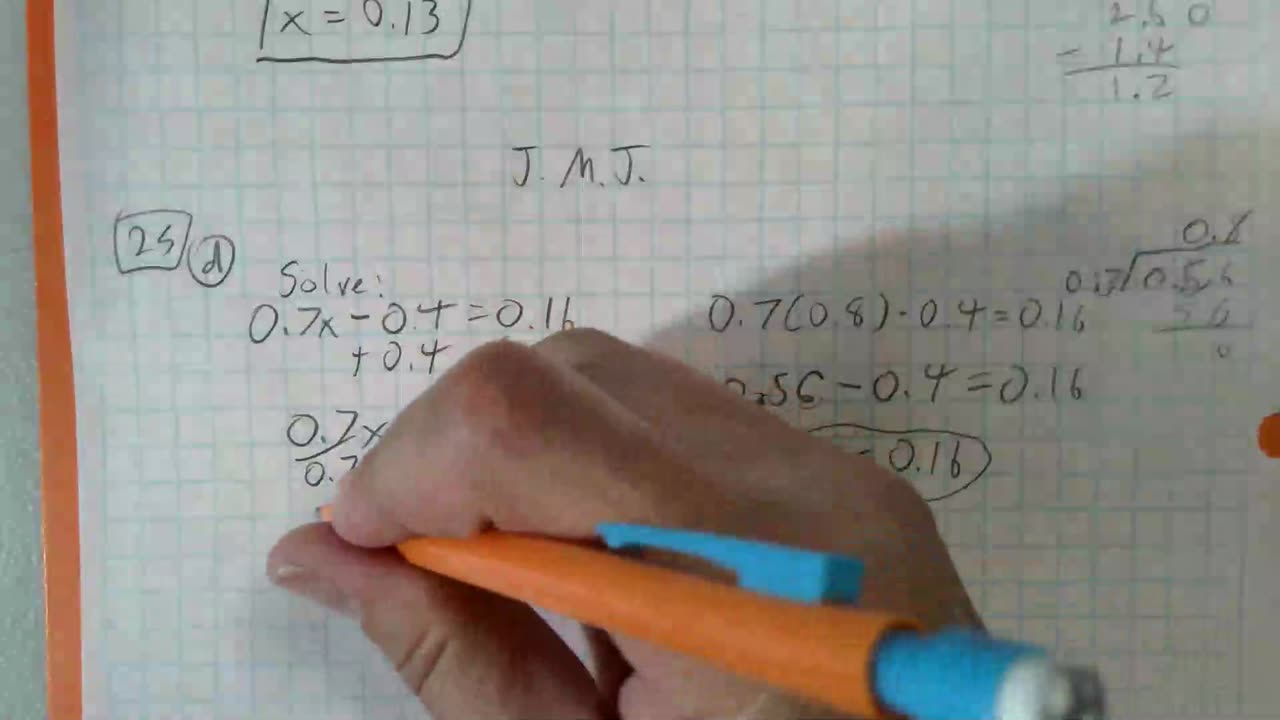 x = 0.13
2.6 0
- 1.4
1.2
J.M.J.
25 d
Solve:
0.7x - 0.4 = 0.16
+ 0.4
0.7x
0.7
0.7(0.8) - 0.4 = 0.16
.56 - 0.4 = 0.16
= 0.16
0.8
0.56